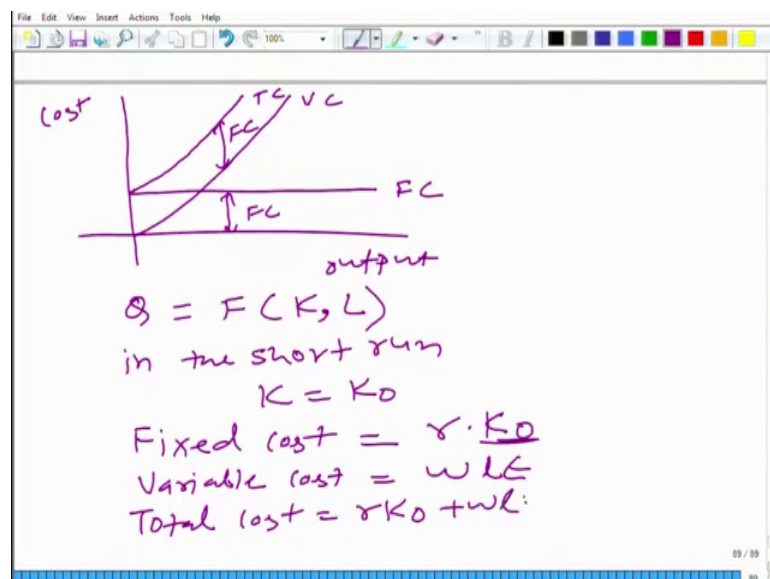 File Edit View Insert Actions Tools Help
100%
B I
cost
TC VC
FC
FC
FC
output
Q = F(K, L)
in the short run
K = K0
Fixed cost = r. K0
Variable cost = wL
Total cost = rK0 + wl
89 / 89
89